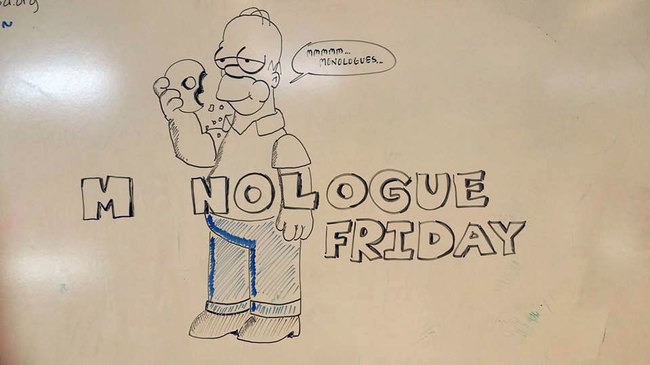 MMMMM...
MONOLOGUES...
M NOLOGUE
FRIDAY